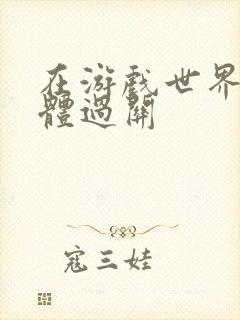 在游戲世界
體過關
寇三娃